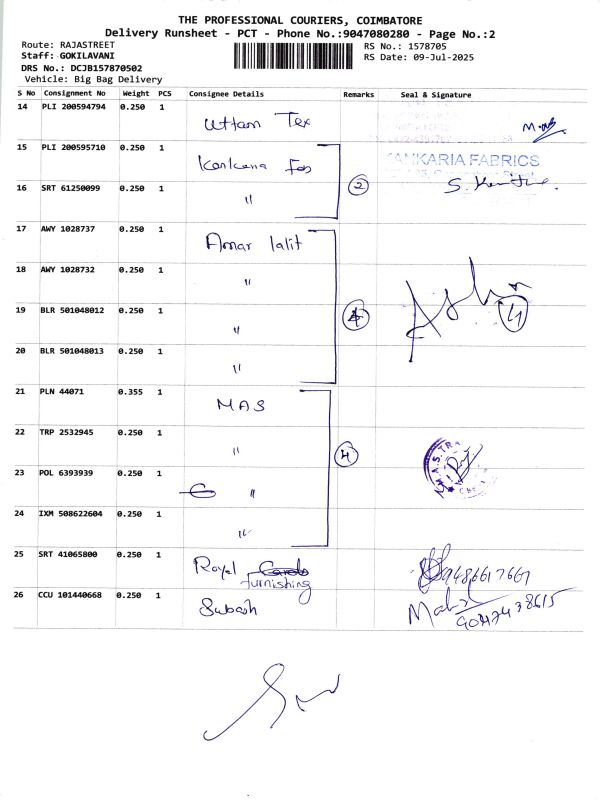 THE PROFESSIONAL COURIERS, COIMBATORE
Delivery Runsheet - PCT - Phone No.:9047080280 - Page No.:2
Route: RAJASTREET
RS No.: 1578705
Staff: GOKILAVANI
RS Date: 09-Jul-2025
DRS No.: DCJB157870502
Vehicle: Big Bag Delivery
S No Consignment No Weight PCS Consignee Details Remarks Seal & Signature
14 PLI 200594794 0.250 1 Uttam Tex
15 PLI 200595710 0.250 1 Kankaria Fab
KANKARIA FABRICS
16 SRT 61250099 0.250 1 " 2
17 AWY 1028737 0.250 1 Amar lalit
18 AWY 1028732 0.250 1 "
19 BLR 501048012 0.250 1 " 4 4
20 BLR 501048013 0.250 1 "
21 PLN 44071 0.355 1 MAS
22 TRP 2532945 0.250 1 " 4
23 POL 6393939 0.250 1 "
24 IXM 508622604 0.250 1 "
25 SRT 41065800 0.250 1 Royal furnishing 9486617667
26 CCU 101440668 0.250 1 Subash